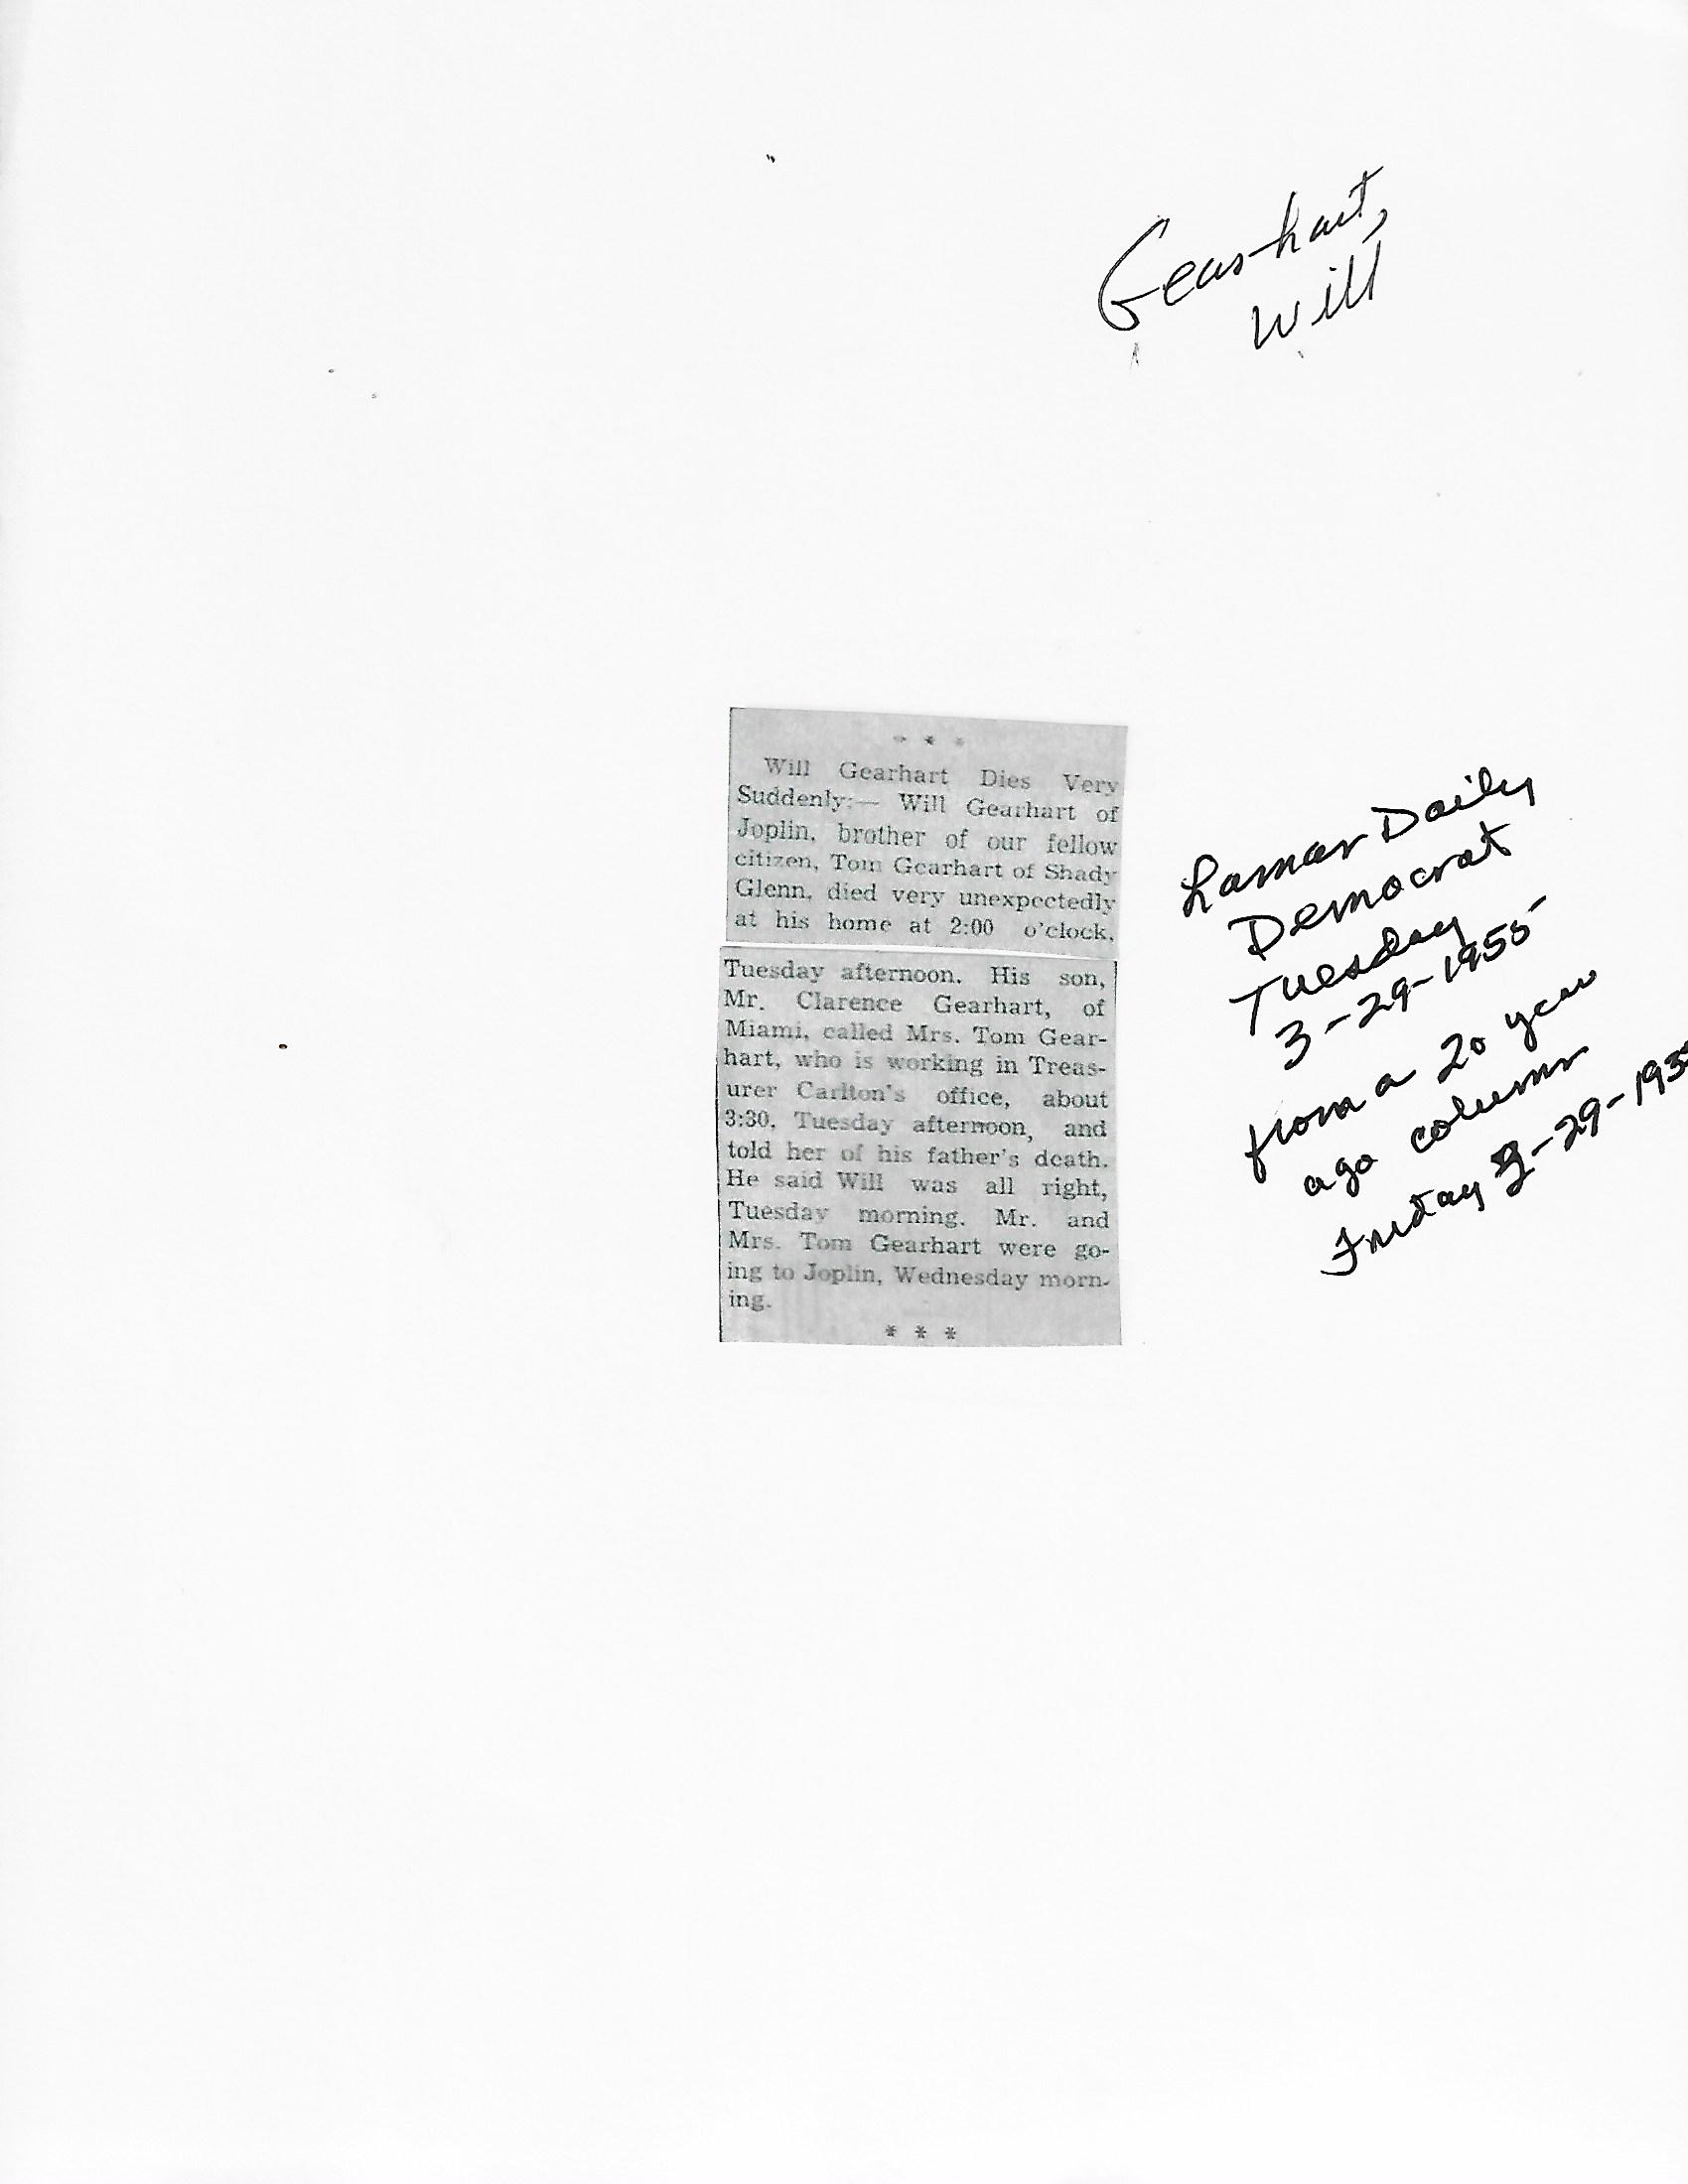 Gearhart,
Will
* * *
Will Gearhart Dies Very
Suddenly:— Will Gearhart of
Joplin, brother of our fellow
citizen, Tom Gearhart of Shady
Glenn, died very unexpectedly
at his home at 2:00 o'clock,
Tuesday afternoon. His son,
Mr. Clarence Gearhart, of
Miami, called Mrs. Tom Gear-
hart, who is working in Treas-
urer Carlton's office, about
3:30, Tuesday afternoon, and
told her of his father's death.
He said Will was all right,
Tuesday morning. Mr. and
Mrs. Tom Gearhart were go-
ing to Joplin, Wednesday morn-
ing.
* * *
Lamar Daily
Democrat
Tuesday
3-29-1955
from a 20 year
ago column
Friday 3-29-193